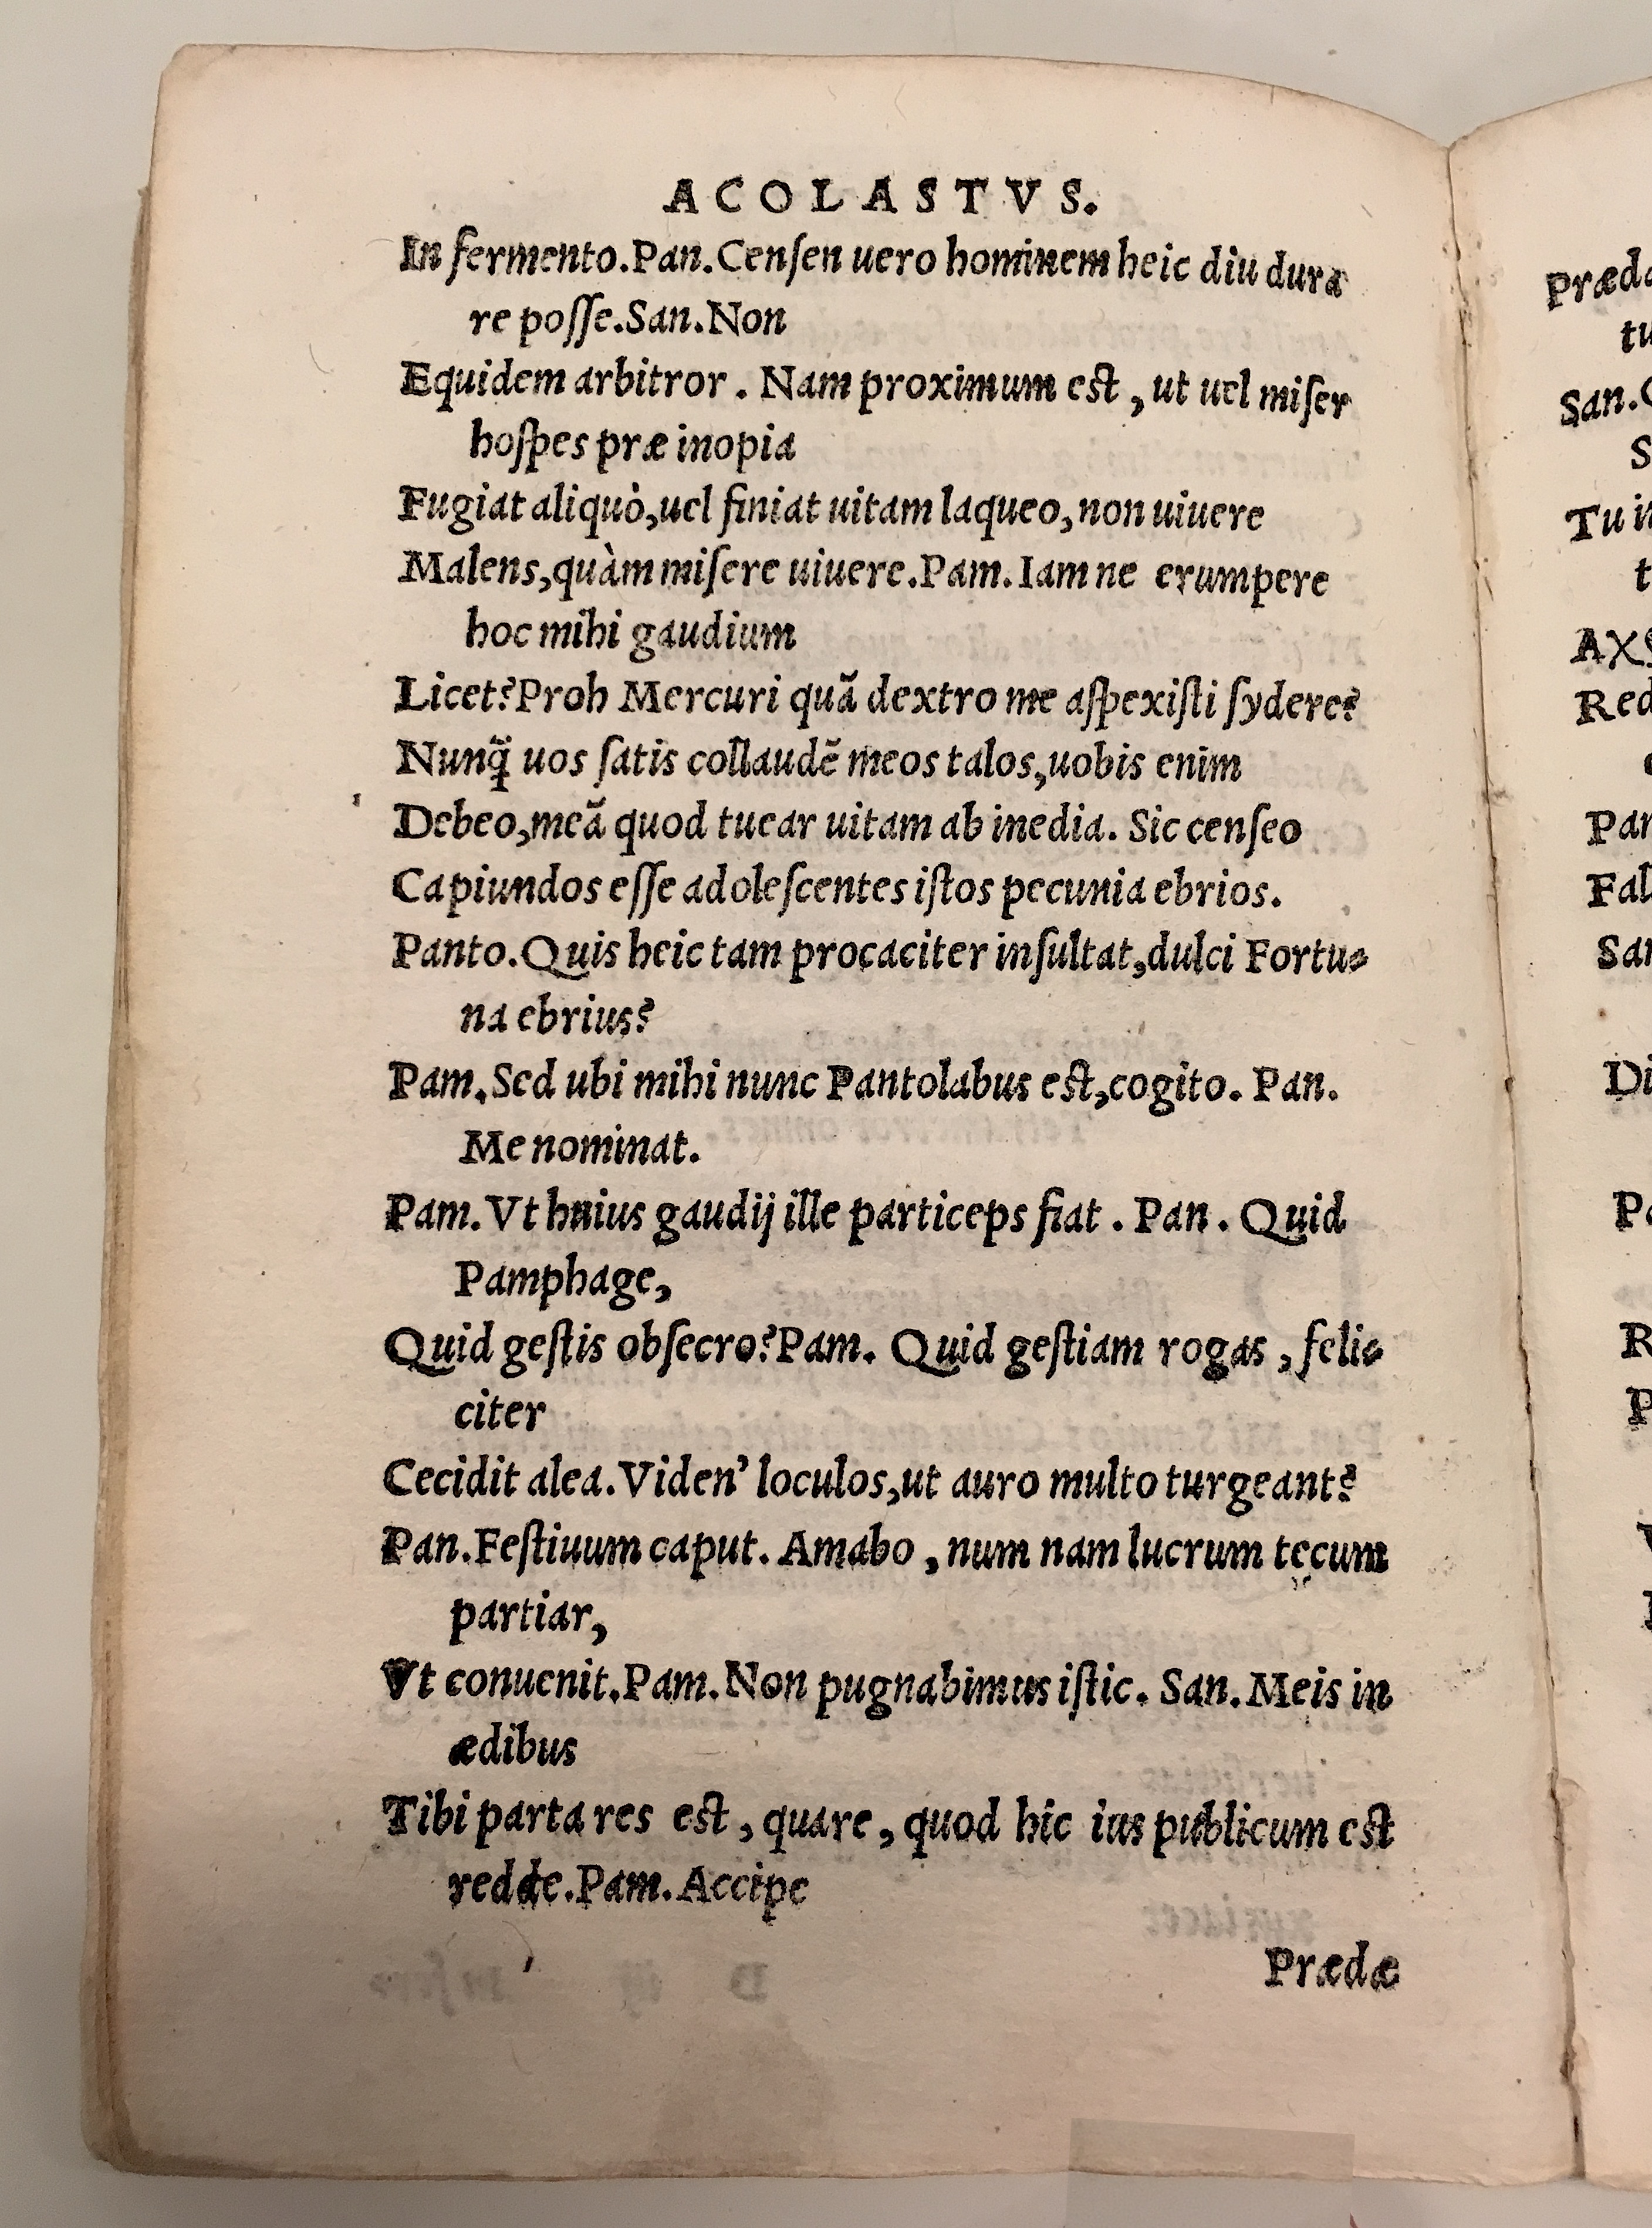 ACOLASTVS.
In fermento.Pan.Cenſen uero hominem heic diu dura
re poſſe.San.Non
Equidem arbitror. Nam proximum eſt, ut uel miſer
hoſpes præ inopia
Fugiat aliquò,uel finiat uitam laqueo,non uiuere
Malens,quàm miſere uiuere.Pam.Iam ne erumpere
hoc mihi gaudium
Licet?Proh Mercuri quã dextro me aſpexiſti ſydere?
Nunq̃ uos ſatis collaudẽ meos talos,uobis enim
Debeo,meã quod tuear uitam ab inedia. Sic cenſeo
Capiundos eſſe adoleſcentes iſtos pecunia ebrios.
Panto.Quis heic tam procaciter inſultat,dulci Fortu-
na ebrius?
Pam.Sed ubi mihi nunc Pantolabus eſt,cogito. Pan.
Me nominat.
Pam.Vt huius gaudij ille particeps fiat. Pan. Quid
Pamphage,
Quid geſtis obſecro?Pam. Quid geſtiam rogas, feli-
citer
Cecidit alea.Viden' loculos,ut auro multo turgeant?
Pan.Feſtiuum caput. Amabo, num nam lucrum tecum
partiar,
Vt conuenit.Pam.Non pugnabimus iſtic. San.Meis in
ædibus
Tibi parta res eſt, quare, quod hic ius publicum eſt
redde.Pam.Accipe
Prædæ
San.
Tu